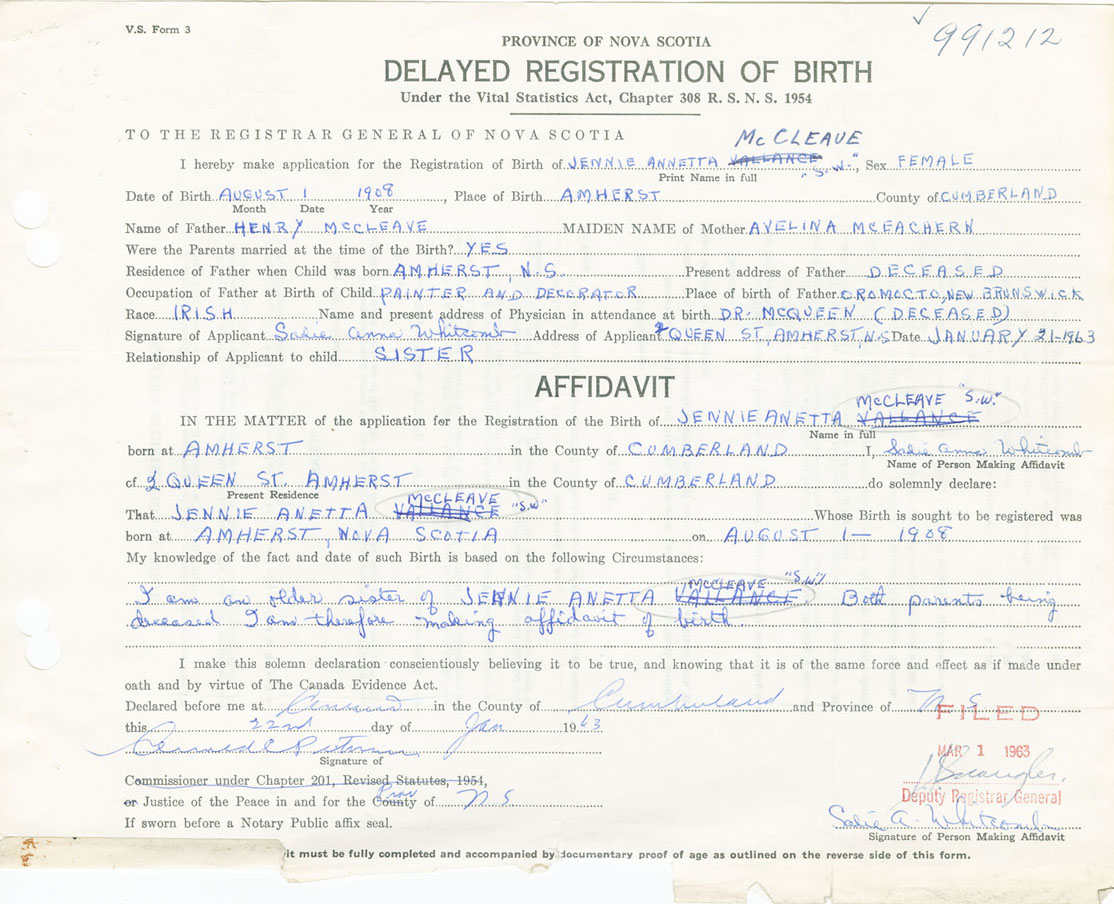 V.S. Form 3
991212
PROVINCE OF NOVA SCOTIA
DELAYED REGISTRATION OF BIRTH
Under the Vital Statistics Act, Chapter 308 R. S. N. S. 1954
TO THE REGISTRAR GENERAL OF NOVA SCOTIA
McCLEAVE
I hereby make application for the Registration of Birth of JENNIE ANNETTA VALLANCE "S.W.", Sex FEMALE
Print Name in full
Date of Birth AUGUST 1 1908, Place of Birth AMHERST County of CUMBERLAND
Month Date Year
Name of Father HENRY McCLEAVE MAIDEN NAME of Mother AVELINA McEACHERN
Were the Parents married at the time of the Birth? YES
Residence of Father when Child was born AMHERST, N.S. Present address of Father DECEASED
Occupation of Father at Birth of Child PAINTER AND DECORATOR Place of birth of Father OROMOCTO, NEW BRUNSWICK
Race IRISH Name and present address of Physician in attendance at birth DR. McQUEEN (DECEASED)
Signature of Applicant Sadie Anna Whitcomb Address of Applicant 2 QUEEN ST, AMHERST, N.S Date JANUARY 21-1963
Relationship of Applicant to child SISTER
AFFIDAVIT
McCLEAVE "S.W."
IN THE MATTER of the application for the Registration of the Birth of JENNIE ANETTA VALLANCE
Name in full
born at AMHERST in the County of CUMBERLAND I, Sadie Anna Whitcomb
Name of Person Making Affidavit
of 2 QUEEN ST. AMHERST in the County of CUMBERLAND do solemnly declare:
Present Residence
McCLEAVE "S.W"
That JENNIE ANETTA VALLANCE Whose Birth is sought to be registered was
born at AMHERST, NOVA SCOTIA on AUGUST 1 — 1908
My knowledge of the fact and date of such Birth is based on the following Circumstances:
McCLEAVE "S.W."
I am an older sister of JENNIE ANETTA VALLANCE. Both parents being
deceased I am therefore making affidavit of birth
I make this solemn declaration conscientiously believing it to be true, and knowing that it is of the same force and effect as if made under
oath and by virtue of The Canada Evidence Act.
Declared before me at Amherst in the County of Cumberland and Province of N S
this 22nd day of Jan 1963
FILED
MAR 1 1963
Signature of
Commissioner under Chapter 201, Revised Statutes, 1954,
Deputy Registrar General
Prov
or Justice of the Peace in and for the County of N S
Sadie A. Whitcomb
If sworn before a Notary Public affix seal.
Signature of Person Making Affidavit
it must be fully completed and accompanied by documentary proof of age as outlined on the reverse side of this form.